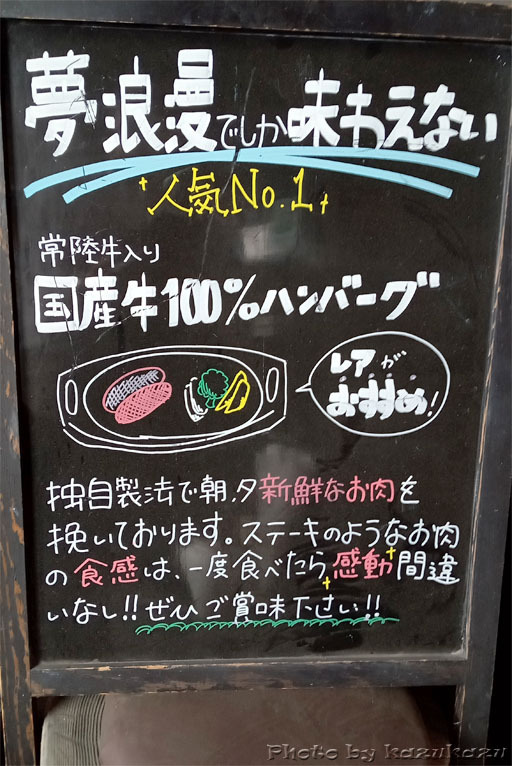 夢浪漫でしか味わえない
人気No.1
常陸牛入り
国産牛100%ハンバーグ
レアが
おすすめ!
独自製法で朝、夕新鮮なお肉を
挽いております。ステーキのようなお肉
の食感は、一度食べたら感動間違
いなし!!ぜひご賞味下さい!!
Photo by kazukazu